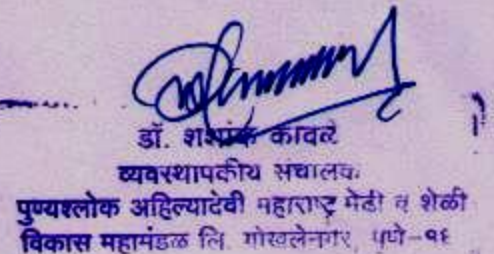 डॉ. शशांक कांबळे
व्यवस्थापकीय संचालक
पुण्यश्लोक अहिल्यादेवी महाराष्ट्र मेंढी व शेळी
विकास महामंडळ लि. गोखलेनगर, पुणे-१६